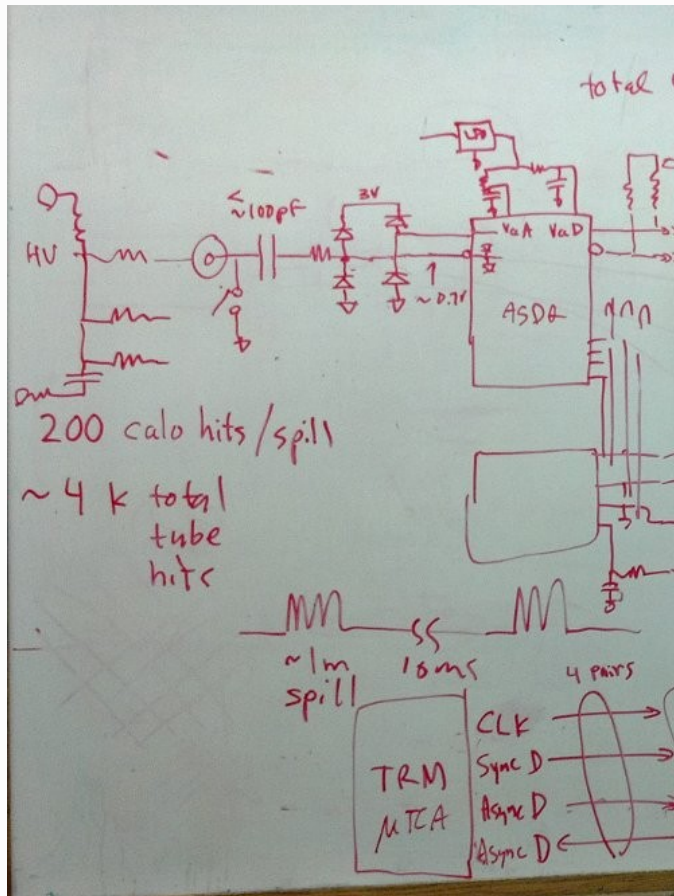 total
LDO
3V
~100pF
HV
VaA VaD
~0.7V
ASDQ
200 calo hits/spill
~4 k total
tube
hits
~1m
spill
10ms
4 pairs
TRM
μTCA
CLK
Sync D
Async D
Async D